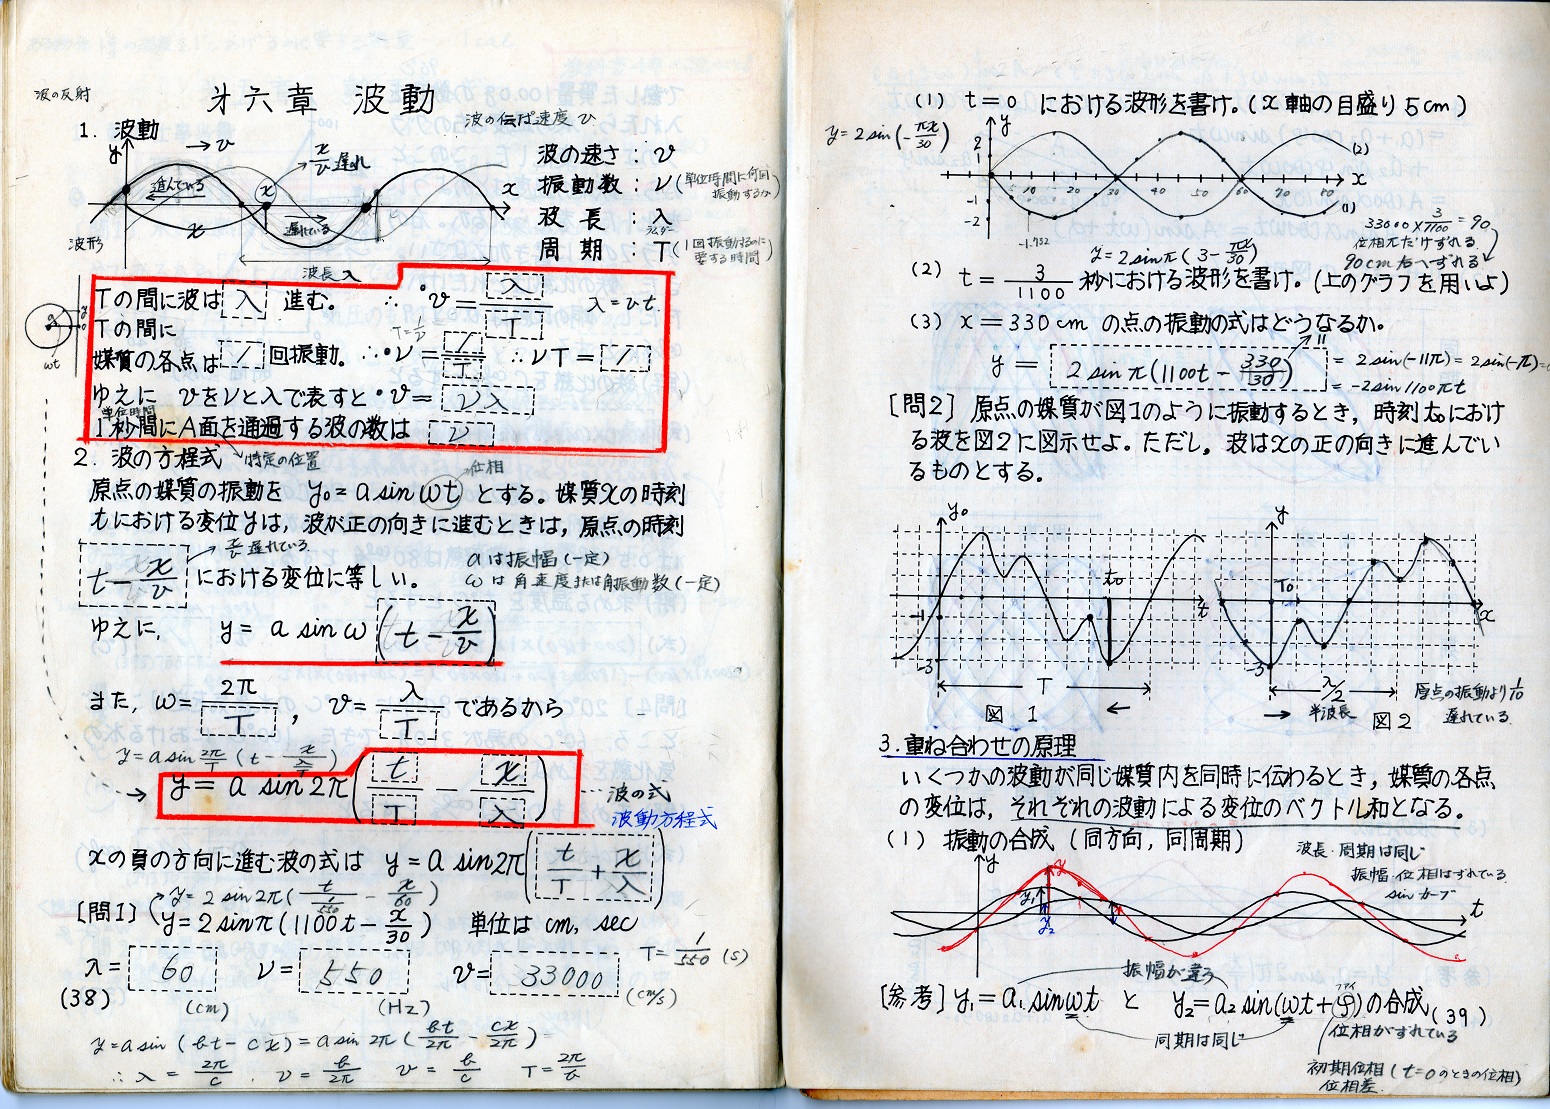 波の反射
才六章 波動
波の伝ぱ速度 v
1. 波動
y
→ v
x/v 遅れ
進んでいる
x
x
遅れている
x
波形
波長 λ
波の速さ: v
振動数: ν (単位時間に何回振動するか)
波長: λ
ラムダー
周期: T (1回振動するのに要する時間)
Tの間に波は λ 進む。 ∴ v = λ/T λ = vt
Tの間に
媒質の各点は 1 回振動。 ∴ ν = 1/T ∴ νT = 1
ゆえに vをνとλで表すと v = νλ
単位時間
1秒間にA面を通過する波の数は ν
ωt
特定の位置
2. 波の方程式
位相
原点の媒質の振動を y₀ = a sin ωt とする。媒質xの時刻
tにおける変位yは, 波が正の向きに進むときは, 原点の時刻
x/v 遅れている
t - x/v における変位に等しい。
aは振幅(一定)
ωは角速度または角振動数(一定)
ゆえに, y = a sin ω (t - x/v)
また, ω = 2π/T , v = λ/T であるから
y = a sin 2π (t/T - x/λ)
波の式
波動方程式
xの負の方向に進む波の式は y = a sin 2π (t/T + x/λ)
y = 2 sin 2π (t/(1/550) - x/60)
[問1] y = 2 sin π (1100t - x/30) 単位は cm, sec
T = 1/550 (s)
λ = 60 ν = 550 v = 33000
(cm) (Hz) (cm/s)
(38)
y = a sin (bt - cx) = a sin 2π (bt/2π - cx/2π)
∴ λ = 2π/c . ν = b/2π v = b/c T = 2π/b
(1) t = 0 における波形を書け。(x軸の目盛り 5cm)
y = 2 sin (-πx/30)
y
2
1
-1
-2
10 20 30 40 50 60 70 80
x
(2)
(1)
-1.732
33000 × 3/1100 = 90
位相πだけずれる
90cm右へずれる
y = 2 sin π (3 - x/30)
(2) t = 3/1100 秒における波形を書け。(上のグラフを用いよ)
(3) x = 330 cm の点の振動の式はどうなるか。
11
y = 2 sin π (1100t - 330/30)
= 2 sin (-11π) = 2 sin (-π) = 0
= -2 sin 1100πt
[問2] 原点の媒質が図1のように振動するとき, 時刻t₀におけ
る波を図2に図示せよ。ただし, 波はxの正の向きに進んでい
るものとする。
y₀
t₀
t
-1
-3
T
図 1
y
x
-3
λ/2
半波長
図 2
原点の振動より1/10
遅れている
3. 重ね合わせの原理
いくつかの波動が同じ媒質内を同時に伝わるとき, 媒質の各点
の変位は, それぞれの波動による変位のベクトル和となる。
(1) 振動の合成 (同方向, 同周期)
波長・周期は同じ
振幅・位相はずれている
sinカーブ
y
y
y₁
y₂
t
振幅が違う
[参考] y₁ = a₁ sin ωt と y₂ = a₂ sin (ωt + φ) の合成
ファイ
(39)
同期は同じ
位相がずれている
初期位相 (t=0のときの位相)
位相差